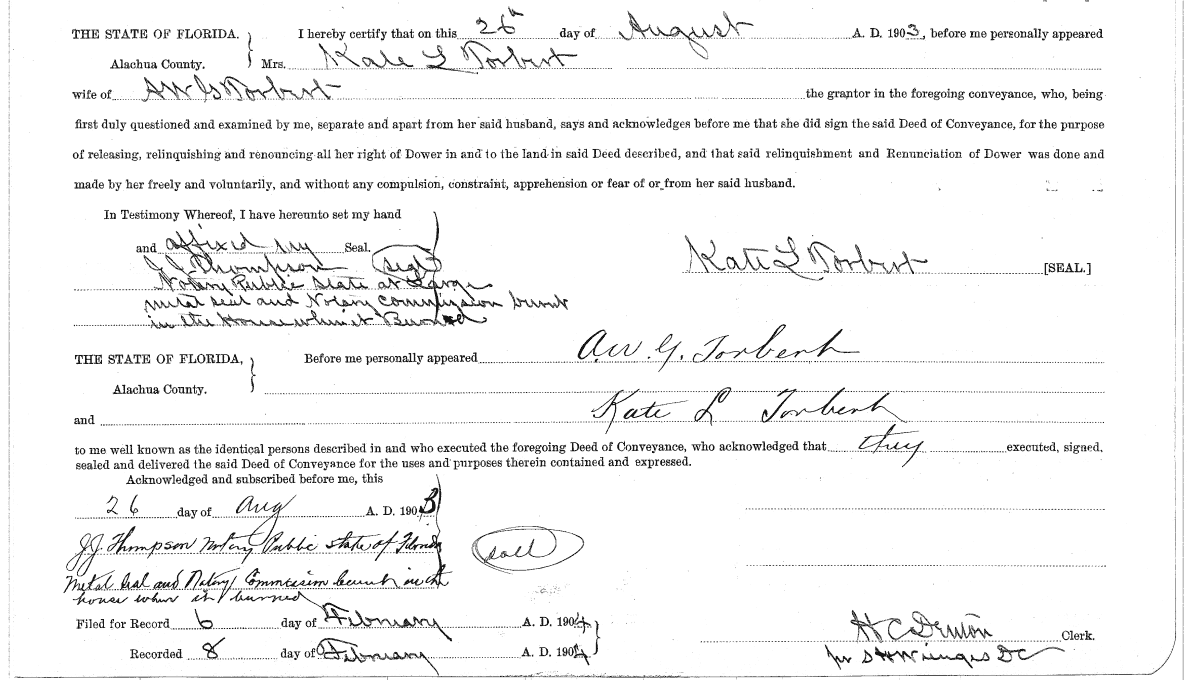 THE STATE OF FLORIDA. } I hereby certify that on this 26th day of August A. D. 1903, before me personally appeared
Alachua County. } Mrs. Kate L Torbert
wife of AW G Torbert the grantor in the foregoing conveyance, who, being
first duly questioned and examined by me, separate and apart from her said husband, says and acknowledges before me that she did sign the said Deed of Conveyance, for the purpose
of releasing, relinquishing and renouncing all her right of Dower in and to the land in said Deed described, and that said relinquishment and Renunciation of Dower was done and
made by her freely and voluntarily, and without any compulsion, constraint, apprehension or fear of or from her said husband.
In Testimony Whereof, I have hereunto set my hand
and affixed my Seal.
J J Thompson (seal)
Kate L Torbert [SEAL.]
Notary Public State at Large
metal seal and Notary commission burnt
in the House when it Burned
THE STATE OF FLORIDA, } Before me personally appeared AW. G. Torbert
Alachua County. }
and Kate L Torbert
to me well known as the identical persons described in and who executed the foregoing Deed of Conveyance, who acknowledged that they executed, signed,
sealed and delivered the said Deed of Conveyance for the uses and purposes therein contained and expressed.
Acknowledged and subscribed before me, this
26 day of Aug A. D. 1903
J.J. Thompson Notary Public state of Florida
(seal)
Metal Seal and Notary Commission burnt in the
house when it burned
Filed for Record 6 day of February A. D. 1904 }
H C Denton Clerk.
Recorded 8 day of February A. D. 1904 }
per S H Wienges DC